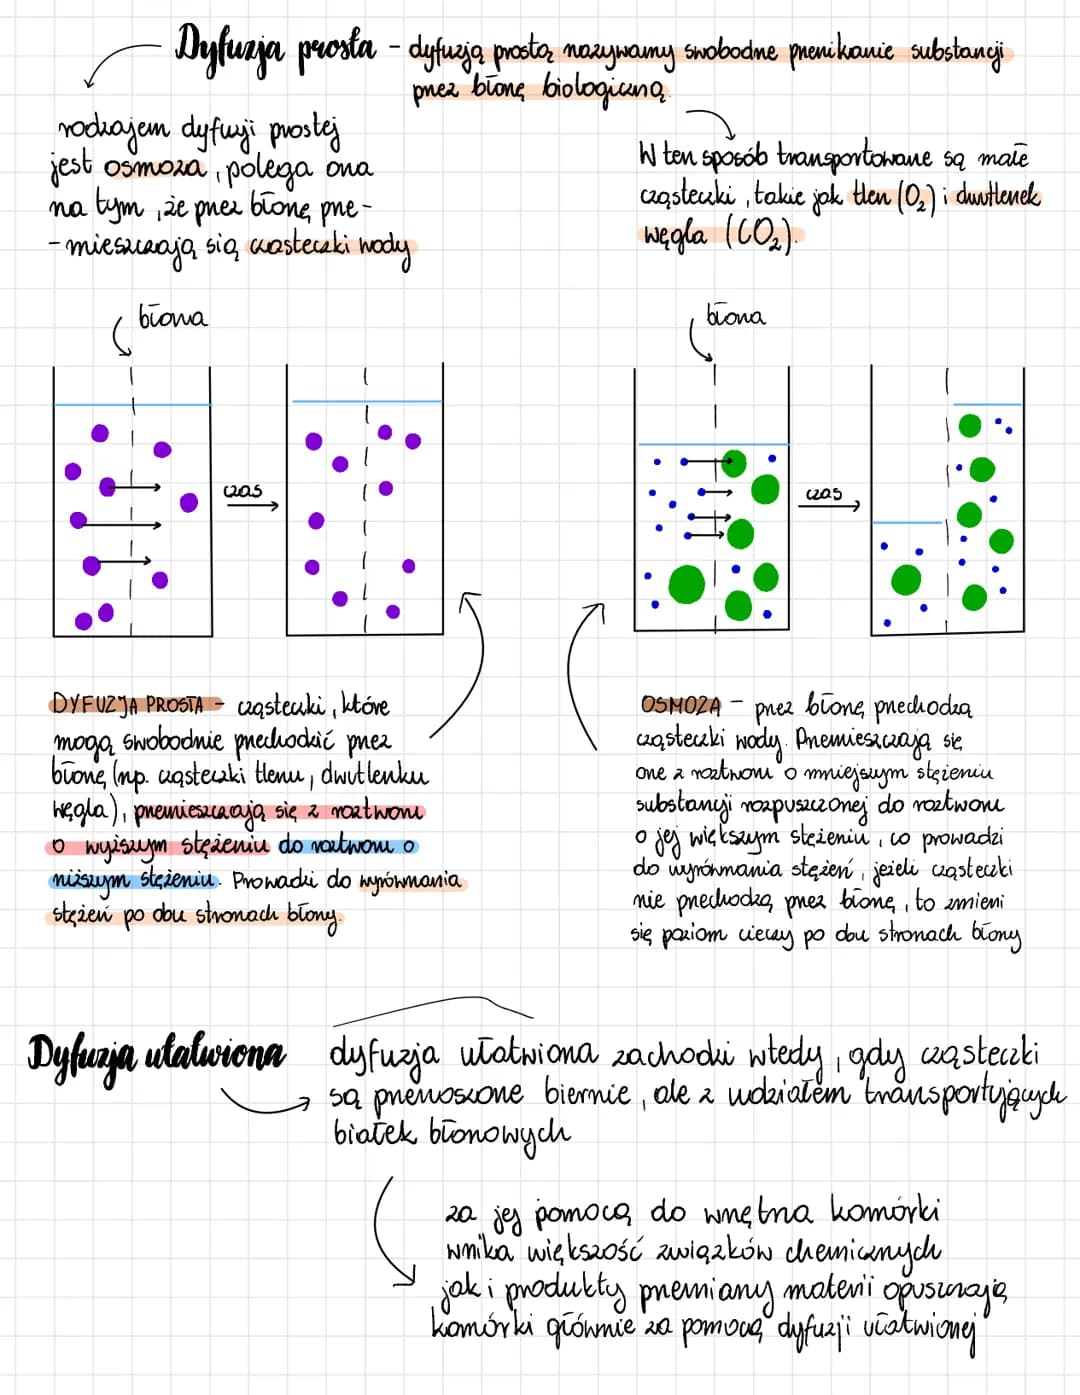 Dyfuzja prosta - dyfuzją prostą nazywamy swobodne przenikanie substancji
przez błonę biologiczną.
rodzajem dyfuzji prostej
jest osmoza, polega ona
na tym, że przez błonę prze-
-mieszczają się cząsteczki wody
W ten sposób transportowane są małe
cząsteczki, takie jak tlen (O₂) i dwutlenek
węgla (CO₂).
błona
błona
czas
czas
DYFUZJA PROSTA - cząsteczki, które
mogą swobodnie przechodzić przez
błonę (np. cząsteczki tlenu, dwutlenku
węgla), przemieszczają się z roztworu
o wyższym stężeniu do roztworu o
niższym stężeniu. Prowadzi do wyrównania
stężeń po obu stronach błony.
OSMOZA - przez błonę przechodzą
cząsteczki wody. Przemieszczają się
one z roztworu o mniejszym stężeniu
substancji rozpuszczonej do roztworu
o jej większym stężeniu, co prowadzi
do wyrównania stężeń, jeżeli cząsteczki
nie przechodzą przez błonę, to zmieni
się poziom cieczy po obu stronach błony
Dyfuzja ułatwiona
dyfuzja ułatwiona zachodzi wtedy, gdy cząsteczki
są przenoszone biernie, ale z udziałem transportujących
białek błonowych
za jej pomocą do wnętrza komórki
wnika większość związków chemicznych
jak i produkty przemiany materii opuszczają
komórki głównie za pomocą dyfuzji ułatwionej